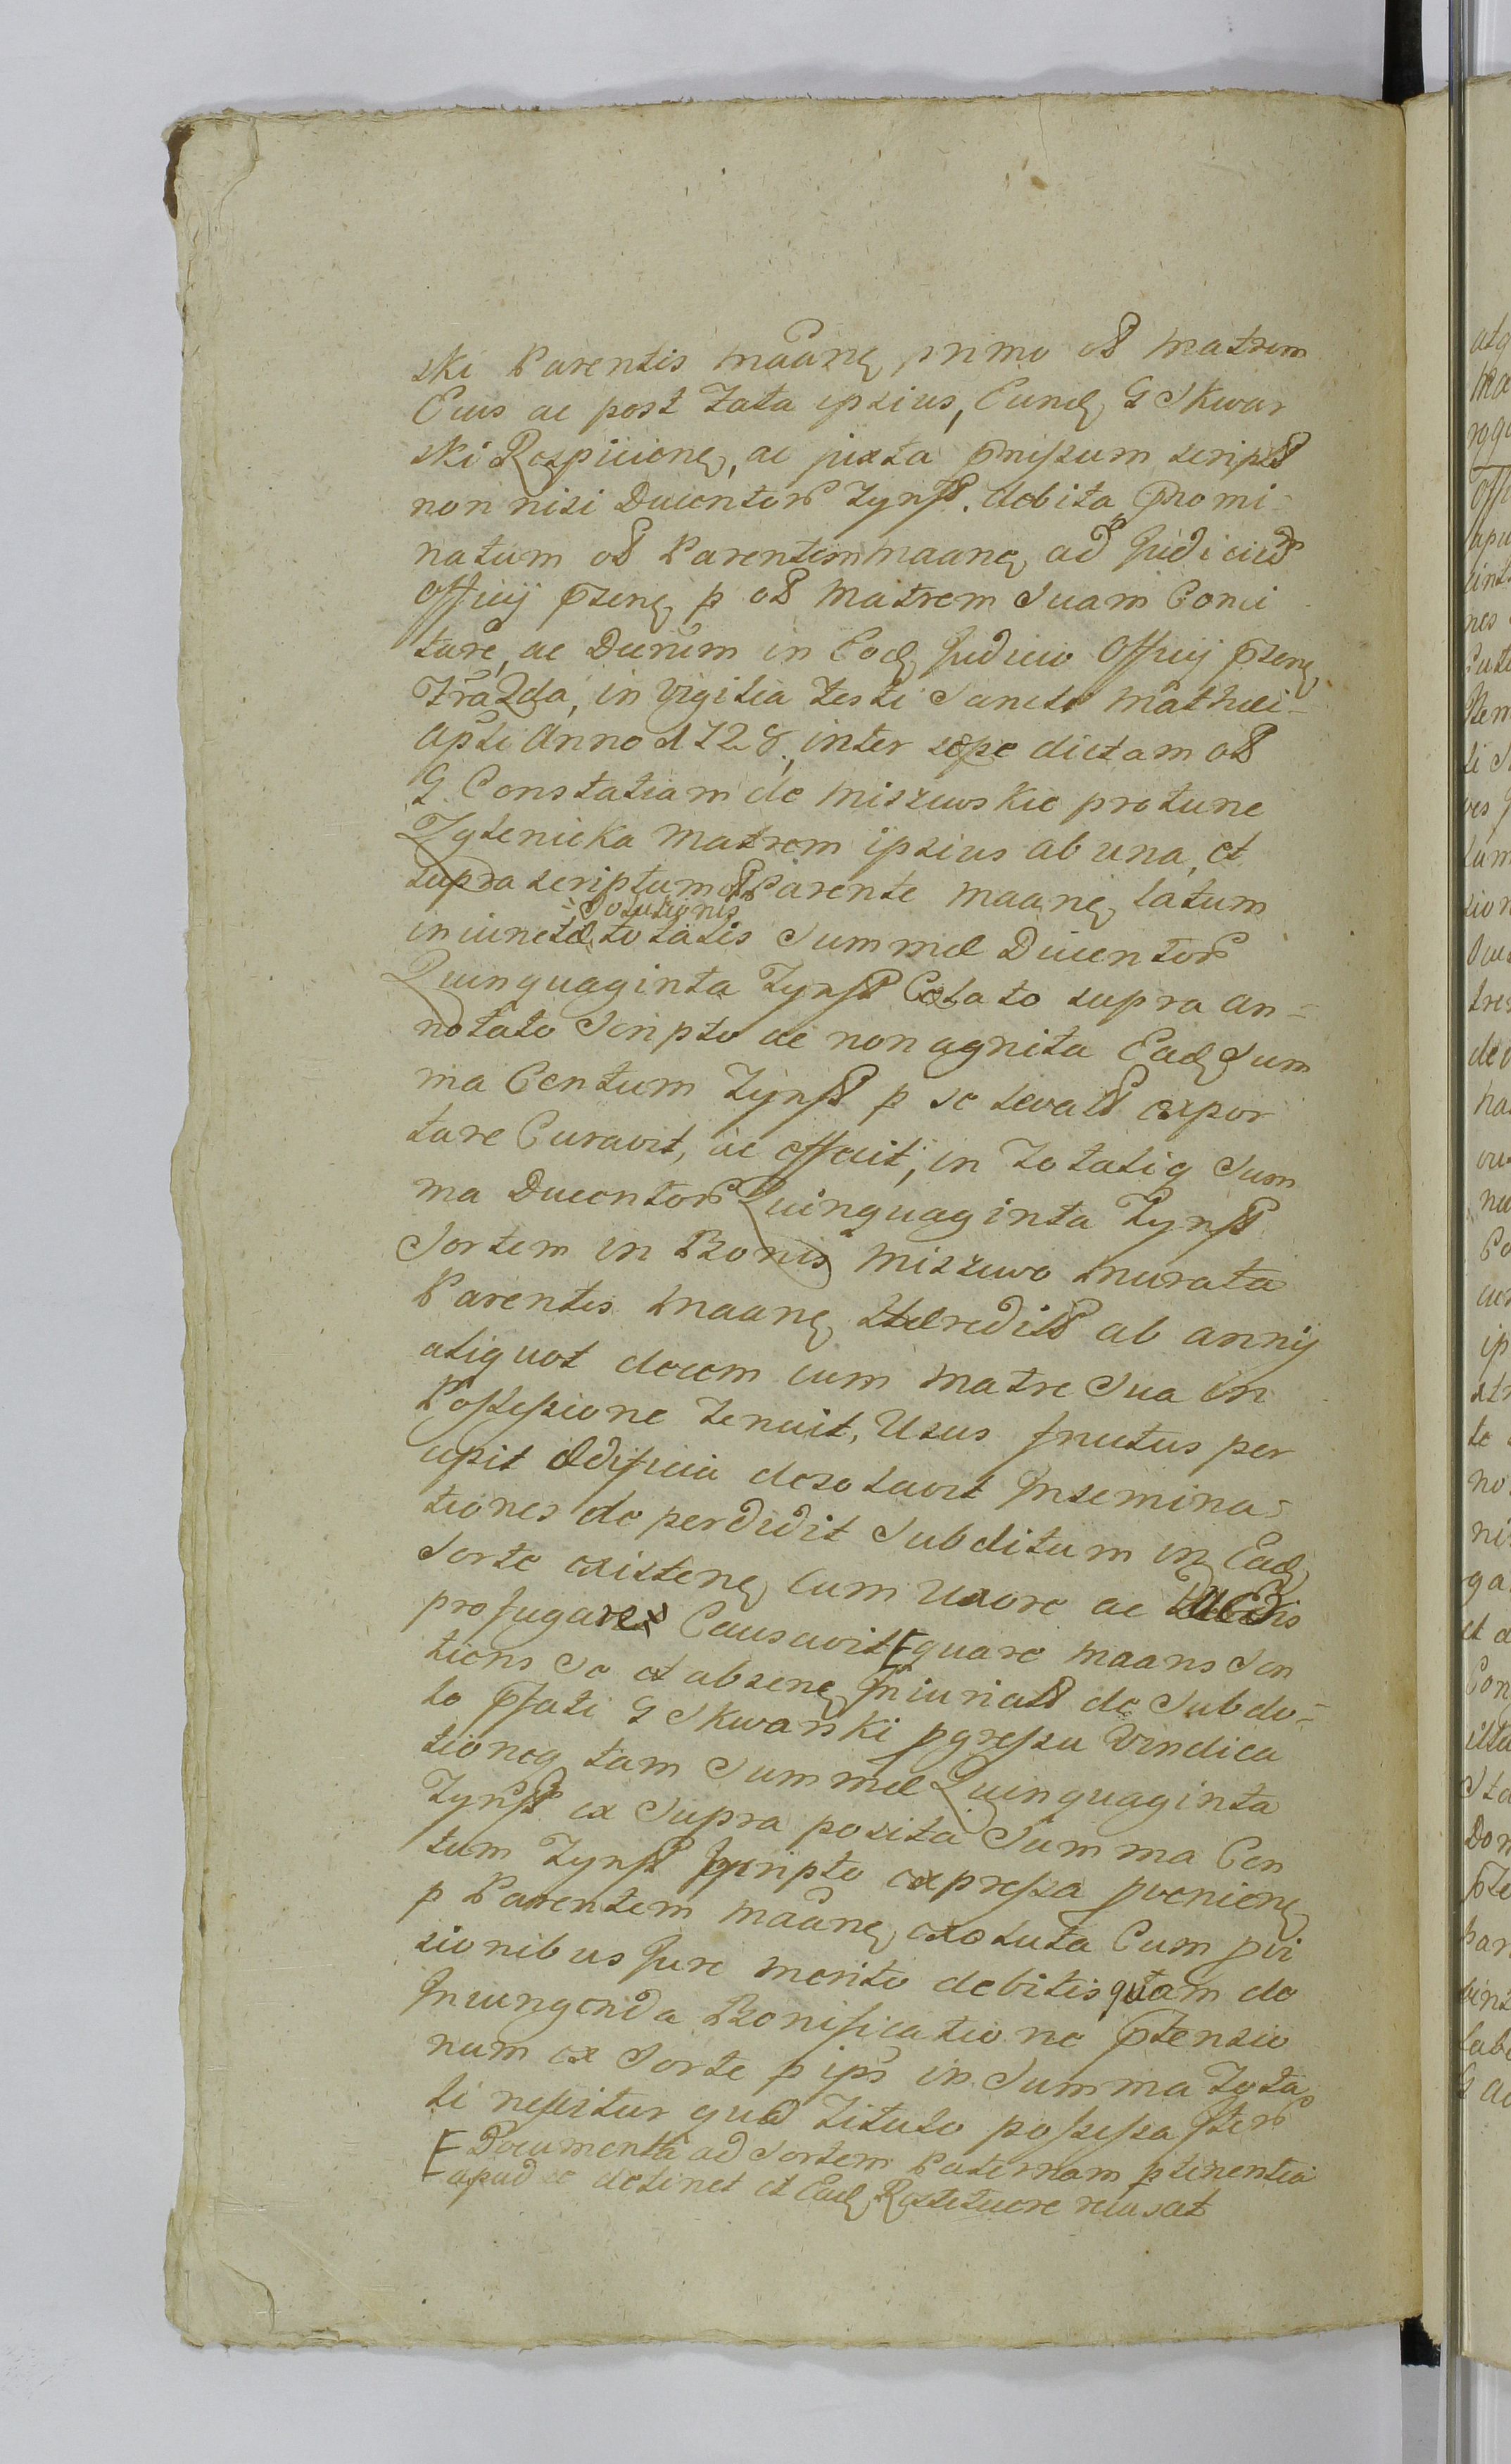 ski Parentis maanẽ primo oB matrem
Eius ac post Fata ipsius, Eundẽ G Skwar
ski Respicienẽ, ac juxta p̃missum script
non nisi Ducentor Tynff. debita p̃nomi-
natum oB Parentem maanẽ ad Judiciũ
Officij p̃senẽ p oB Matrem Suam Conci
tare, ac Decrum in Eodẽ Judicio Officij p̃senẽ
in Vigilia Festi Sancti Mathæi-
Apsti Anno 1728, inter sæpe dictam oB
G. Constatiam de Miszewskie protunc
Zglenicka Matrem ipsius ab una, et
supra scriptum oB Parente maanẽ latum
;Solutionis
iniunctæ totalis Summæ Ducentor
Quinquaginta Tynff Celato supra an-
notato Scripto ac non agnita Eadẽ Sum
ma Centum Tynff p se levatt expor
tare Curavit, ac effecit, in Totaliq Sum
ma Ducentor Quinquaginta Tynff
Sortem in Bonis Miszewo Murata
Parentis maanẽ Hæredit ab annij
aliquot decem cum Matre Sua in
Possessione tenuit, Usus fructus per
cepit Ædificia desolavit Insemina-
tiones deperdidit Subditum in Eadẽ
Sorte existenẽ Cum Uxore ac
profugare Causavit [quare maans Sen
tiens se et absenẽ Iniuriatt de Subdo-
lo p̃fati G Skwarski pgressu Vindica
tioneq tam Summæ Quinquaginta
Tynff ex Supra posita Summa Cen
tum Tynff scripto expressa pvenienẽ
p Parentem maanẽ exoluta Cum pvi
sionibus Jure merito debitis quam de
Iniungenda Bonificatione p̃tensio
num ex Sorte p ips in Summa Tota
li nescitur quo Titulo possessa pter
[Documenta ad Sortem Paternam ptinentia
apud se detinet et Eadẽ Restituere recusat